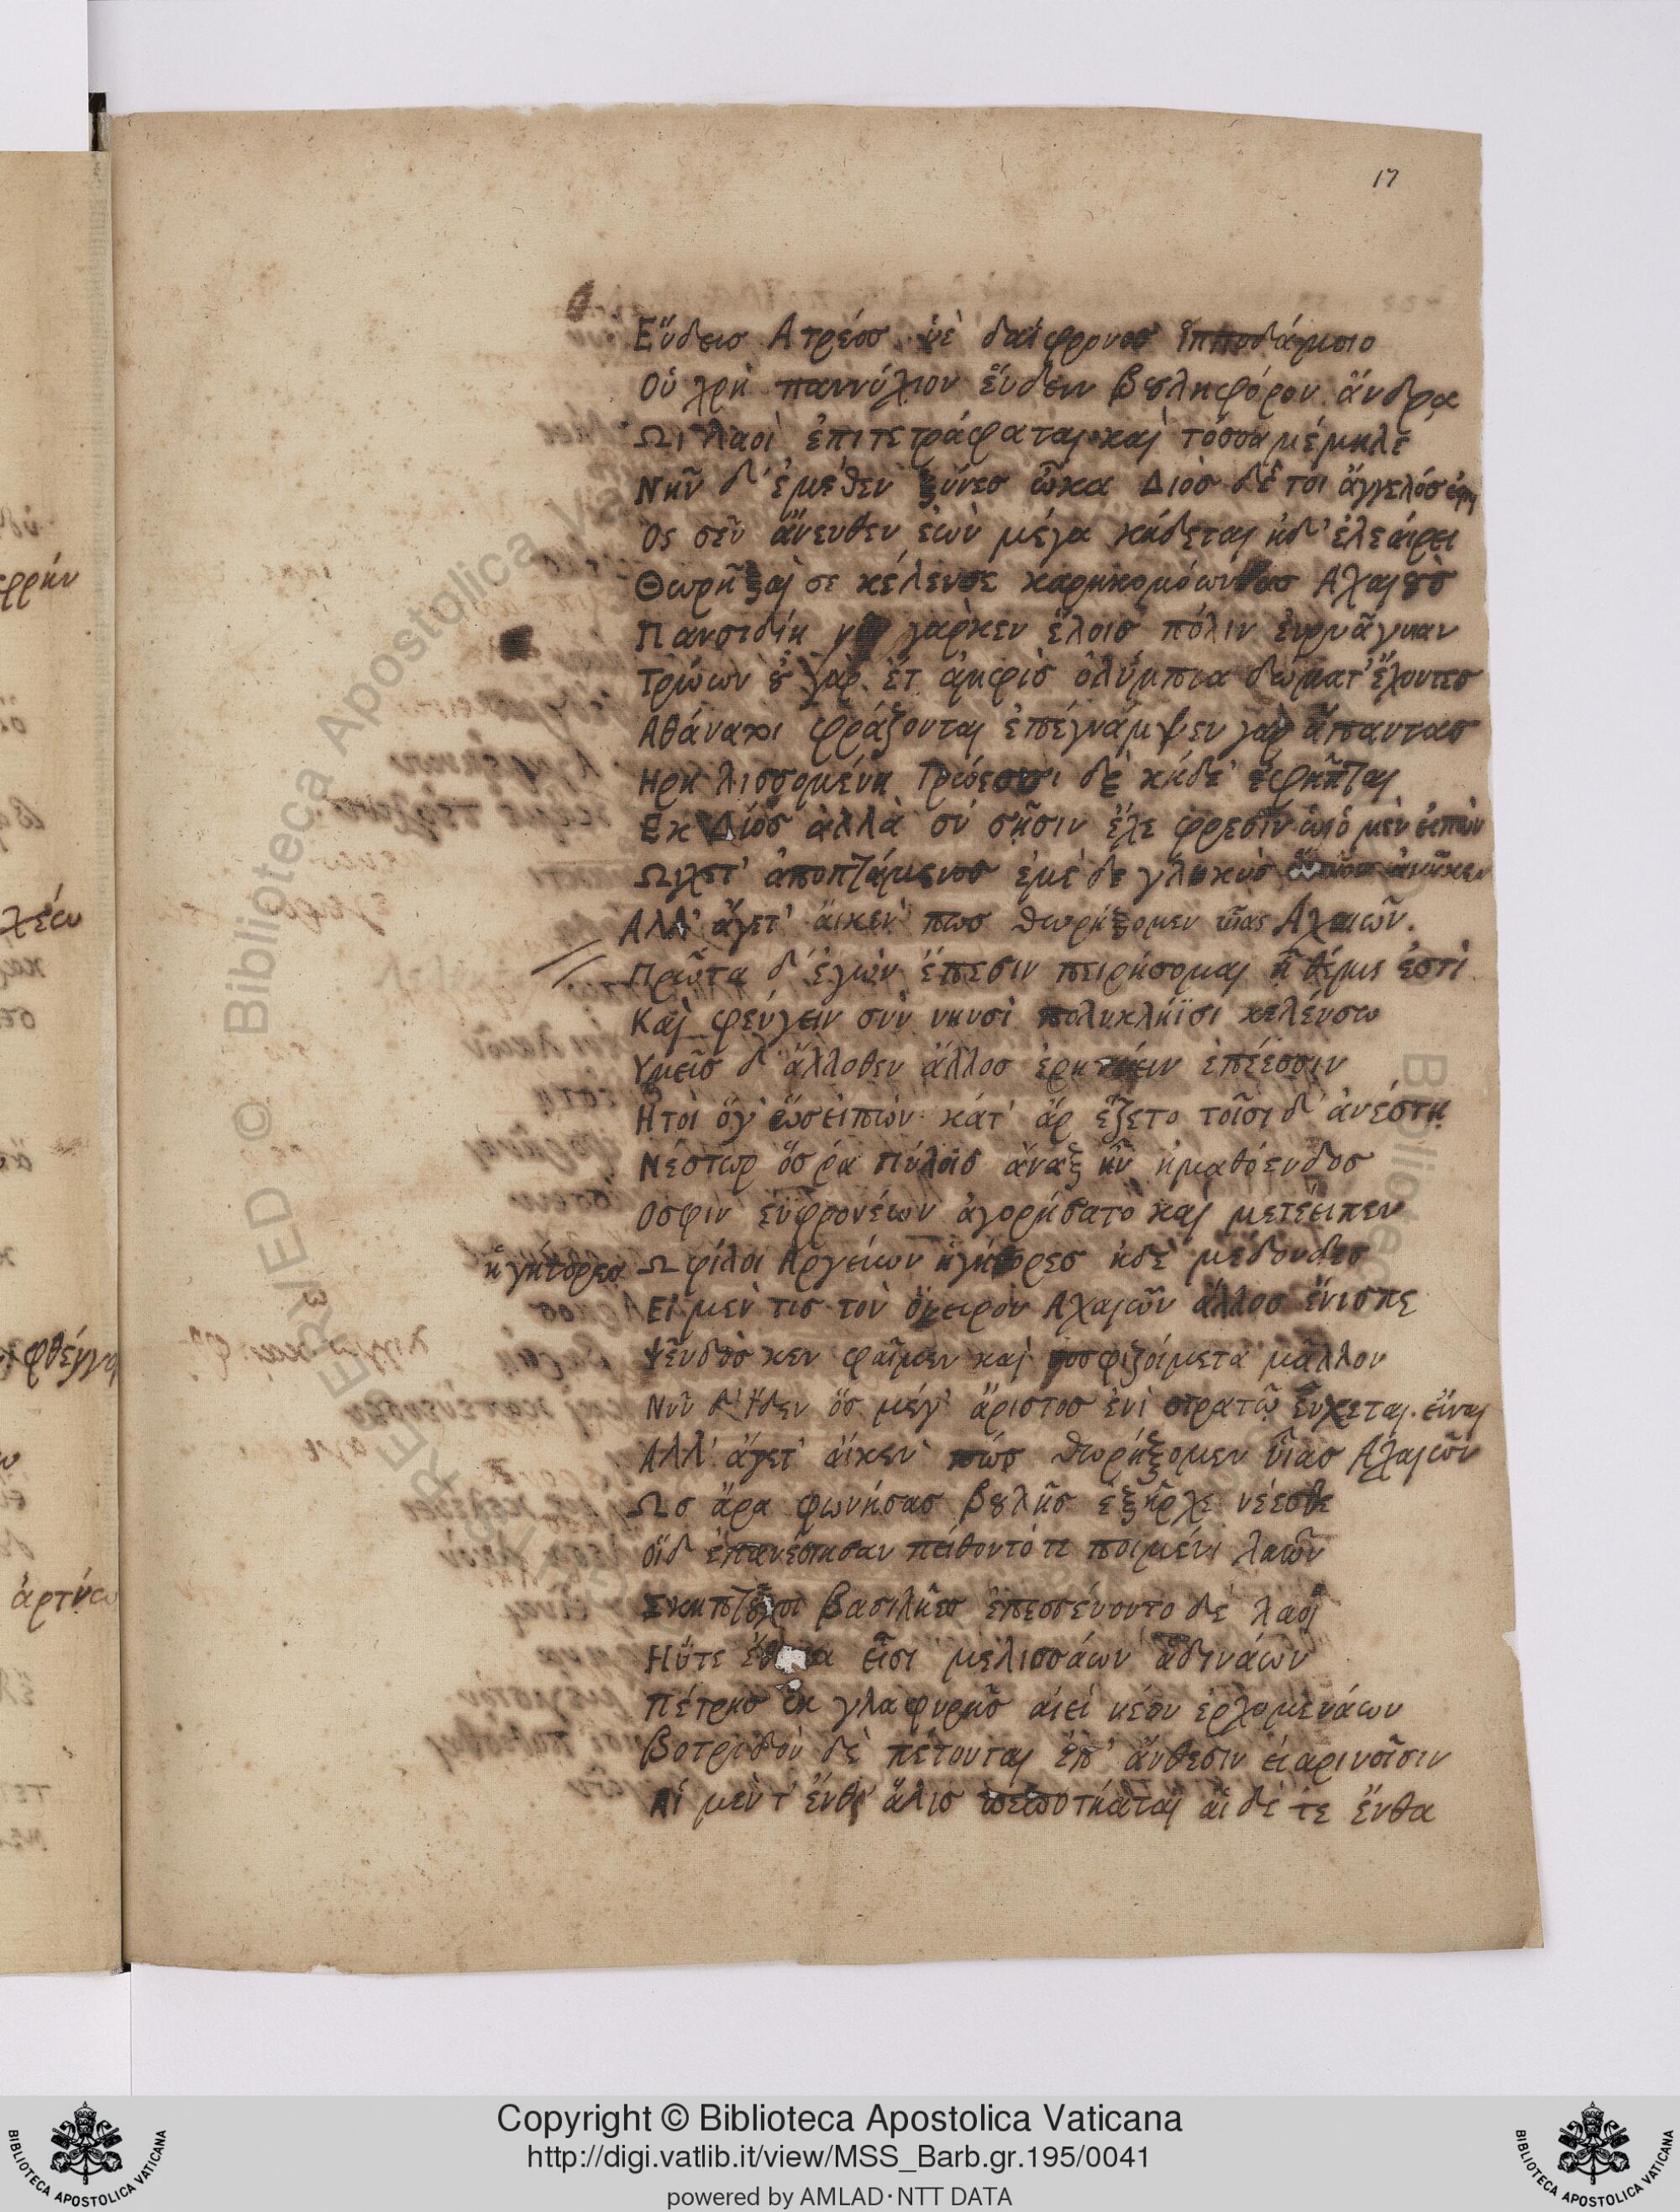 17
Εὕδεισ Ατρέοσ ὑὲ δαίφρονοσ ἱπποδάμοιο
Οὐ χρὴ παννύχιον ἕυδειν βȣληφόρον ἄνδρα
Ωι λαοὶ ἐπιτετράφαται καὶ τόσσα μέμηλε
Νῆν δ' ἐμέθεν ξύνεσ ὦκα Διὸσ δέ τοι ἄγγελόσ εἰμι
Ος σεῦ ἄνευθεν ἐὼν μέγα κήδεται ἠδ' ἐλεάιρει
Θωρῆξαί σε κέλευσε καρηκομόωντασ Αχαιȣ̀σ
Πανσιδίη γαρκεν ἕλοισ πόλιν ἐυρυάγυιαν
Τρώων ȣ̓ γὰρ ἔτ ἀμφὶσ ὀλύμπια δώματ' ἔχοντεσ
Αθάνατοι φράζονται ἐπέγνάμψεν γὰρ ἅπαντασ
Ηρη λισσομένη Τρώεσσι δὲ κήδε' ἐφῆπται
Εκ Διὸσ ἀλλὰ σύ σῇσιν ἔχε φρεσίν ὡσ ὁ μὲν ἐιπὼν
Ωχετ' ἀποπτάμενοσ ἐμὲ δε γλυκὺσ ὕπνοσ ἀνῆκεν
Αλλ' ἄγετ' ἄικεν πωσ θωρήξομεν υἷας Αχαιῶν.
Πρῶτα δ' ἐγὼν ἔπεσιν πειρήσομαι ἣ θέμις ἐστὶ
Καὶ φεύγειν σὺν νηυσὶ πολυκλήϊσι κελέυσω
Υμεῖσ δ' ἄλλοθεν ἄλλοσ ἐρητύειν ἐπέεσσιν
Ητοὶ ὅγ' ὣσ ἐιπὼν κάτ' ἄρ ἕζετο τοῖσι δ' ἀνέστη
Νέστωρ ὅσ ῥα Πύλοισ ἄναξ ἦν ἠμαθόενδοσ
Οσφιν ἐϋφρονέων ἀγορήσατο καὶ μετέειπεν
ἡγήτορεσ Ω φίλοι Αργείων ἡγήτορεσ ἠδὲ μέδονδεσ
Εἰ μέν τισ τὸν ὄνειρον Αχαιῶν ἄλλοσ ἔνισπε
Ψεῦδόσ κεν φαῖμεν καὶ νοσφιζόιμετα μᾶλλον
Νῦν δ' ἴδεν ὅσ μέγ' ἄριστοσ ἐνὶ στρατῷ ἔυχεται εἶναι
Αλλ' ἄγετ' ἀίκεν πώσ θωρήξομεν υἷασ Αχαιῶν
Ωσ ἄρα φωνήσασ βȣλῆσ ἐξῆρχε νέεσθε
Οἵδ ἐπανέστησαν πείθοντό τε ποιμένι λαῶν
Σκηπτȣ̃χοι βασιλῆεσ ἐπεσσένοντο δὲ λαοὶ
Ηΰτε εἶσι μελισσάων ἀδινάων
Πέτρησ ἐκ γλαφυρῆσ αἰεὶ νέον ἐρχομενάων
Βοτριδὸν δὲ πέτονται ἐπ' ἄνθεσιν ἐιαρινοῖσιν
Αἱ μέν τ' ἔνθ' ἅλισ πεποτήαται αἱ δέ τε ἔνθα
Copyright © Biblioteca Apostolica Vaticana
http://digi.vatlib.it/view/MSS_Barb.gr.195/0041
powered by AMLAD·NTT DATA